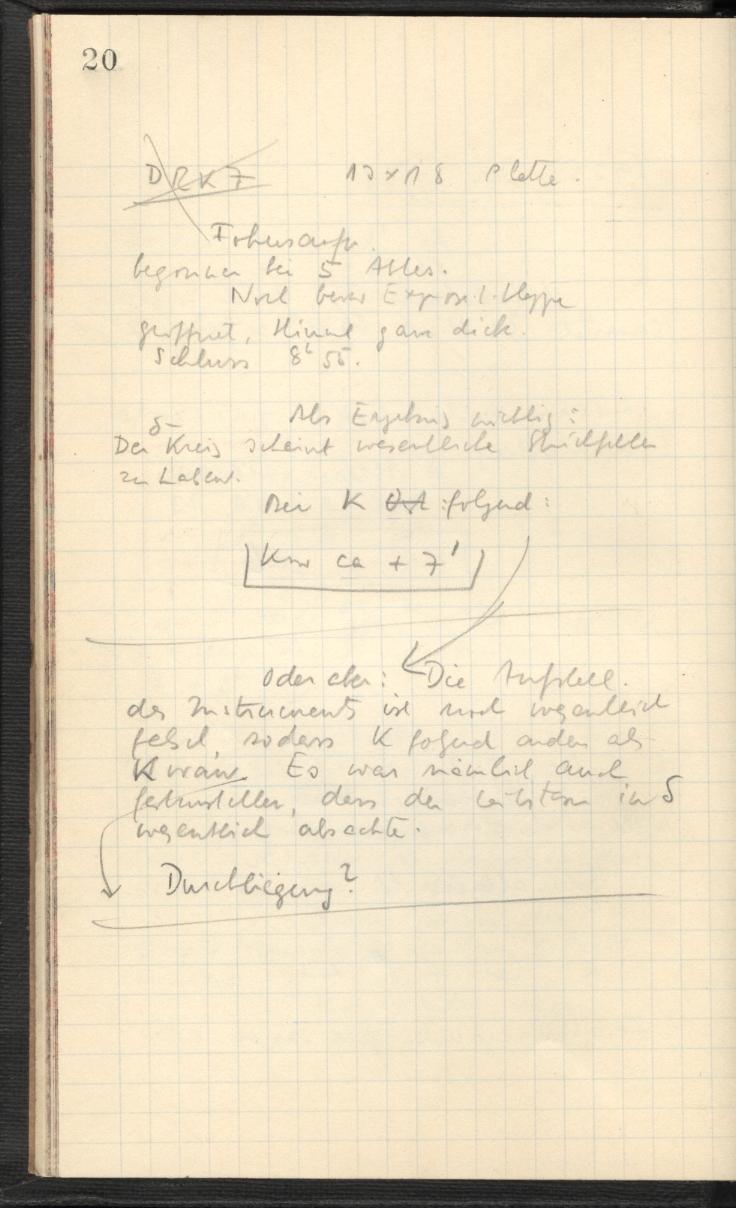 20
DRK7 13x18 Platte.
Fokusaufn.
begonnen bei 5 Atles.
Noch bevor Expos.
geöffnet, Himmel ganz dick.
Schluss 8h 55.
Als Ergebnis wichtig:
δ-
Der Kreis scheint wesentliche
zu haben.
Bei K folgend:
Kor ca + 7'
Oder aber: Die Aufstell.
des Instruments ist noch wesentlich
falsch, sodass K folgend anders als
K voran. Es war nämlich auch
festzustellen, dass der Leitstern in δ
wesentlich absackte.
Durchbiegung?